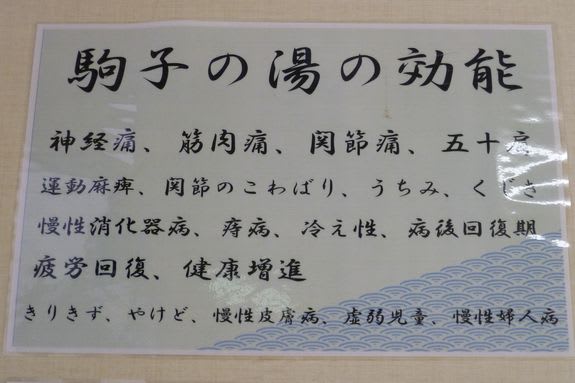 駒子の湯の効能
神経痛、筋肉痛、関節痛、五十肩
運動麻痺、関節のこわばり、うちみ、くじき
慢性消化器病、痔病、冷え性、病後回復期
疲労回復、健康増進
きりきず、やけど、慢性皮膚病、虚弱児童、慢性婦人病